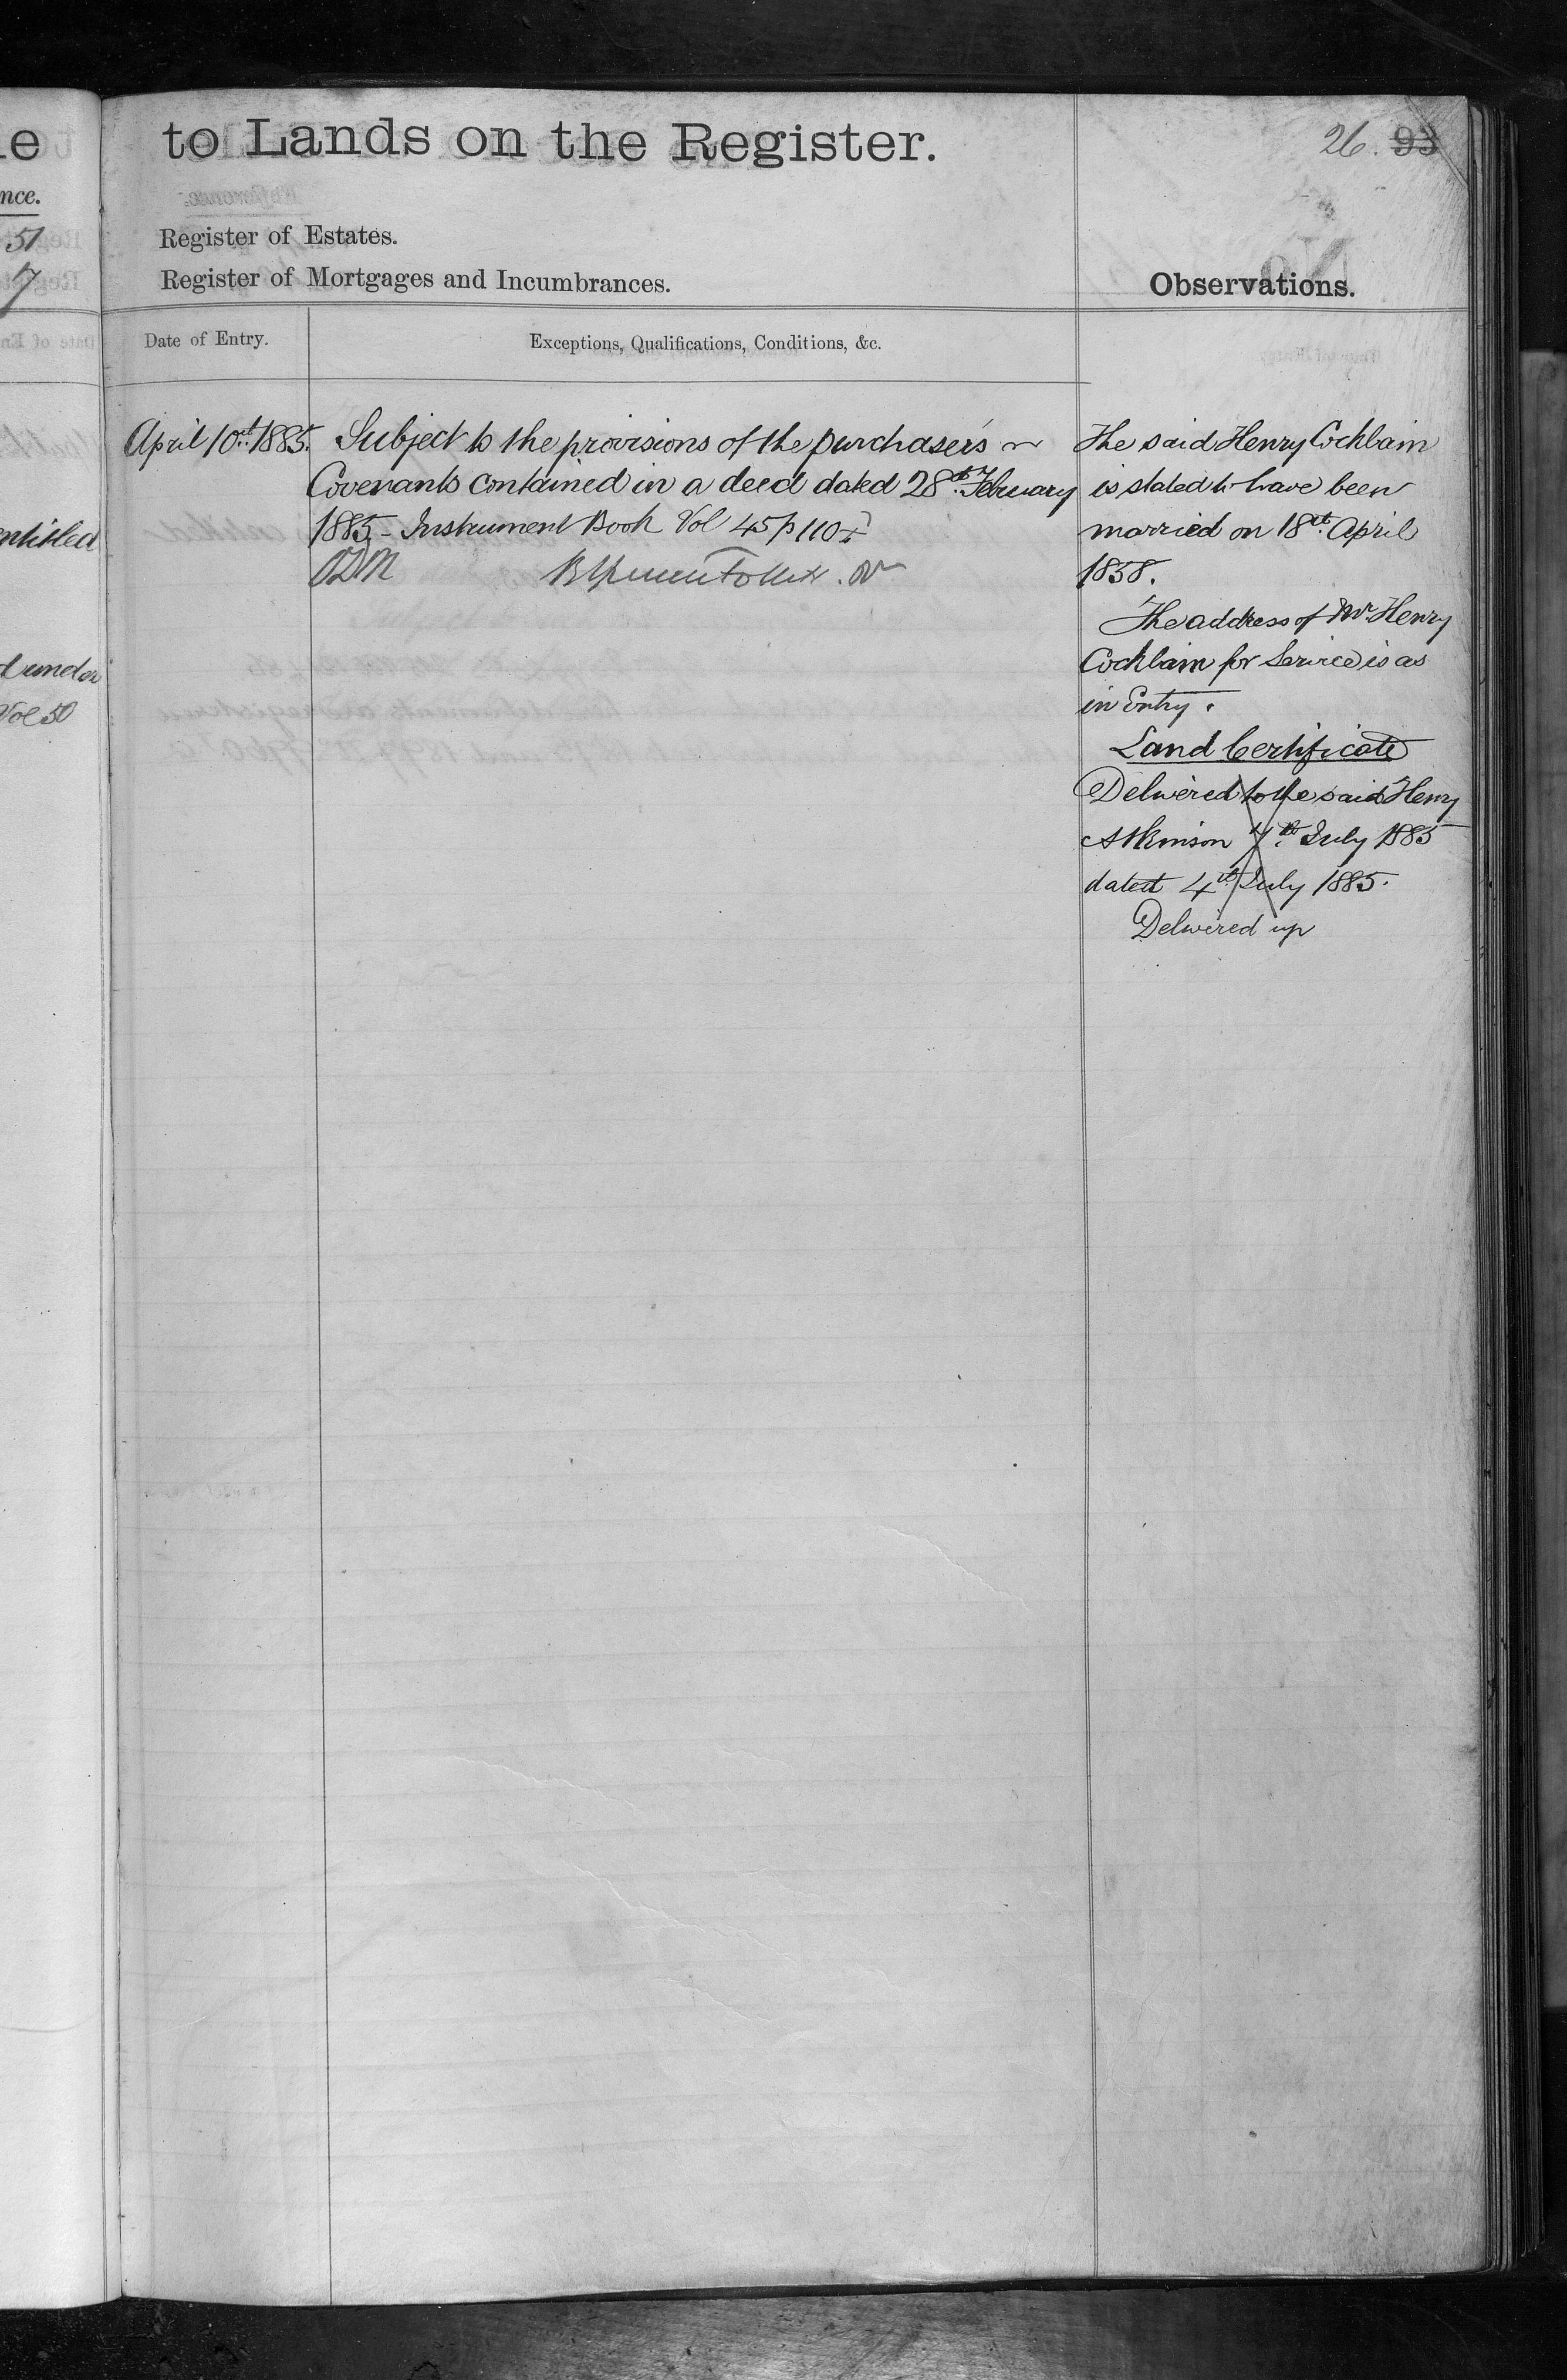 le
nce.
51
7
entitled
d under
Vol 50
to Lands on the Register.
26. 93
Register of Estates.
Register of Mortgages and Incumbrances.
Observations.
Date of Entry.
Exceptions, Qualifications, Conditions, &c.
April 10th 1885.
Subject to the provisions of the purchaser's
Covenants contained in a deed dated 28th February
1885 - Instrument Book Vol 45 p 110
The said Henry Cochbain
is stated to have been
married on 18th April
1858.
The address of Mr Henry
Cochbain for Service is as
in Entry.
Land Certificate
Delivered to the said Henry
Atkinson 7th July 1885
dated 4th July 1885.
Delivered up